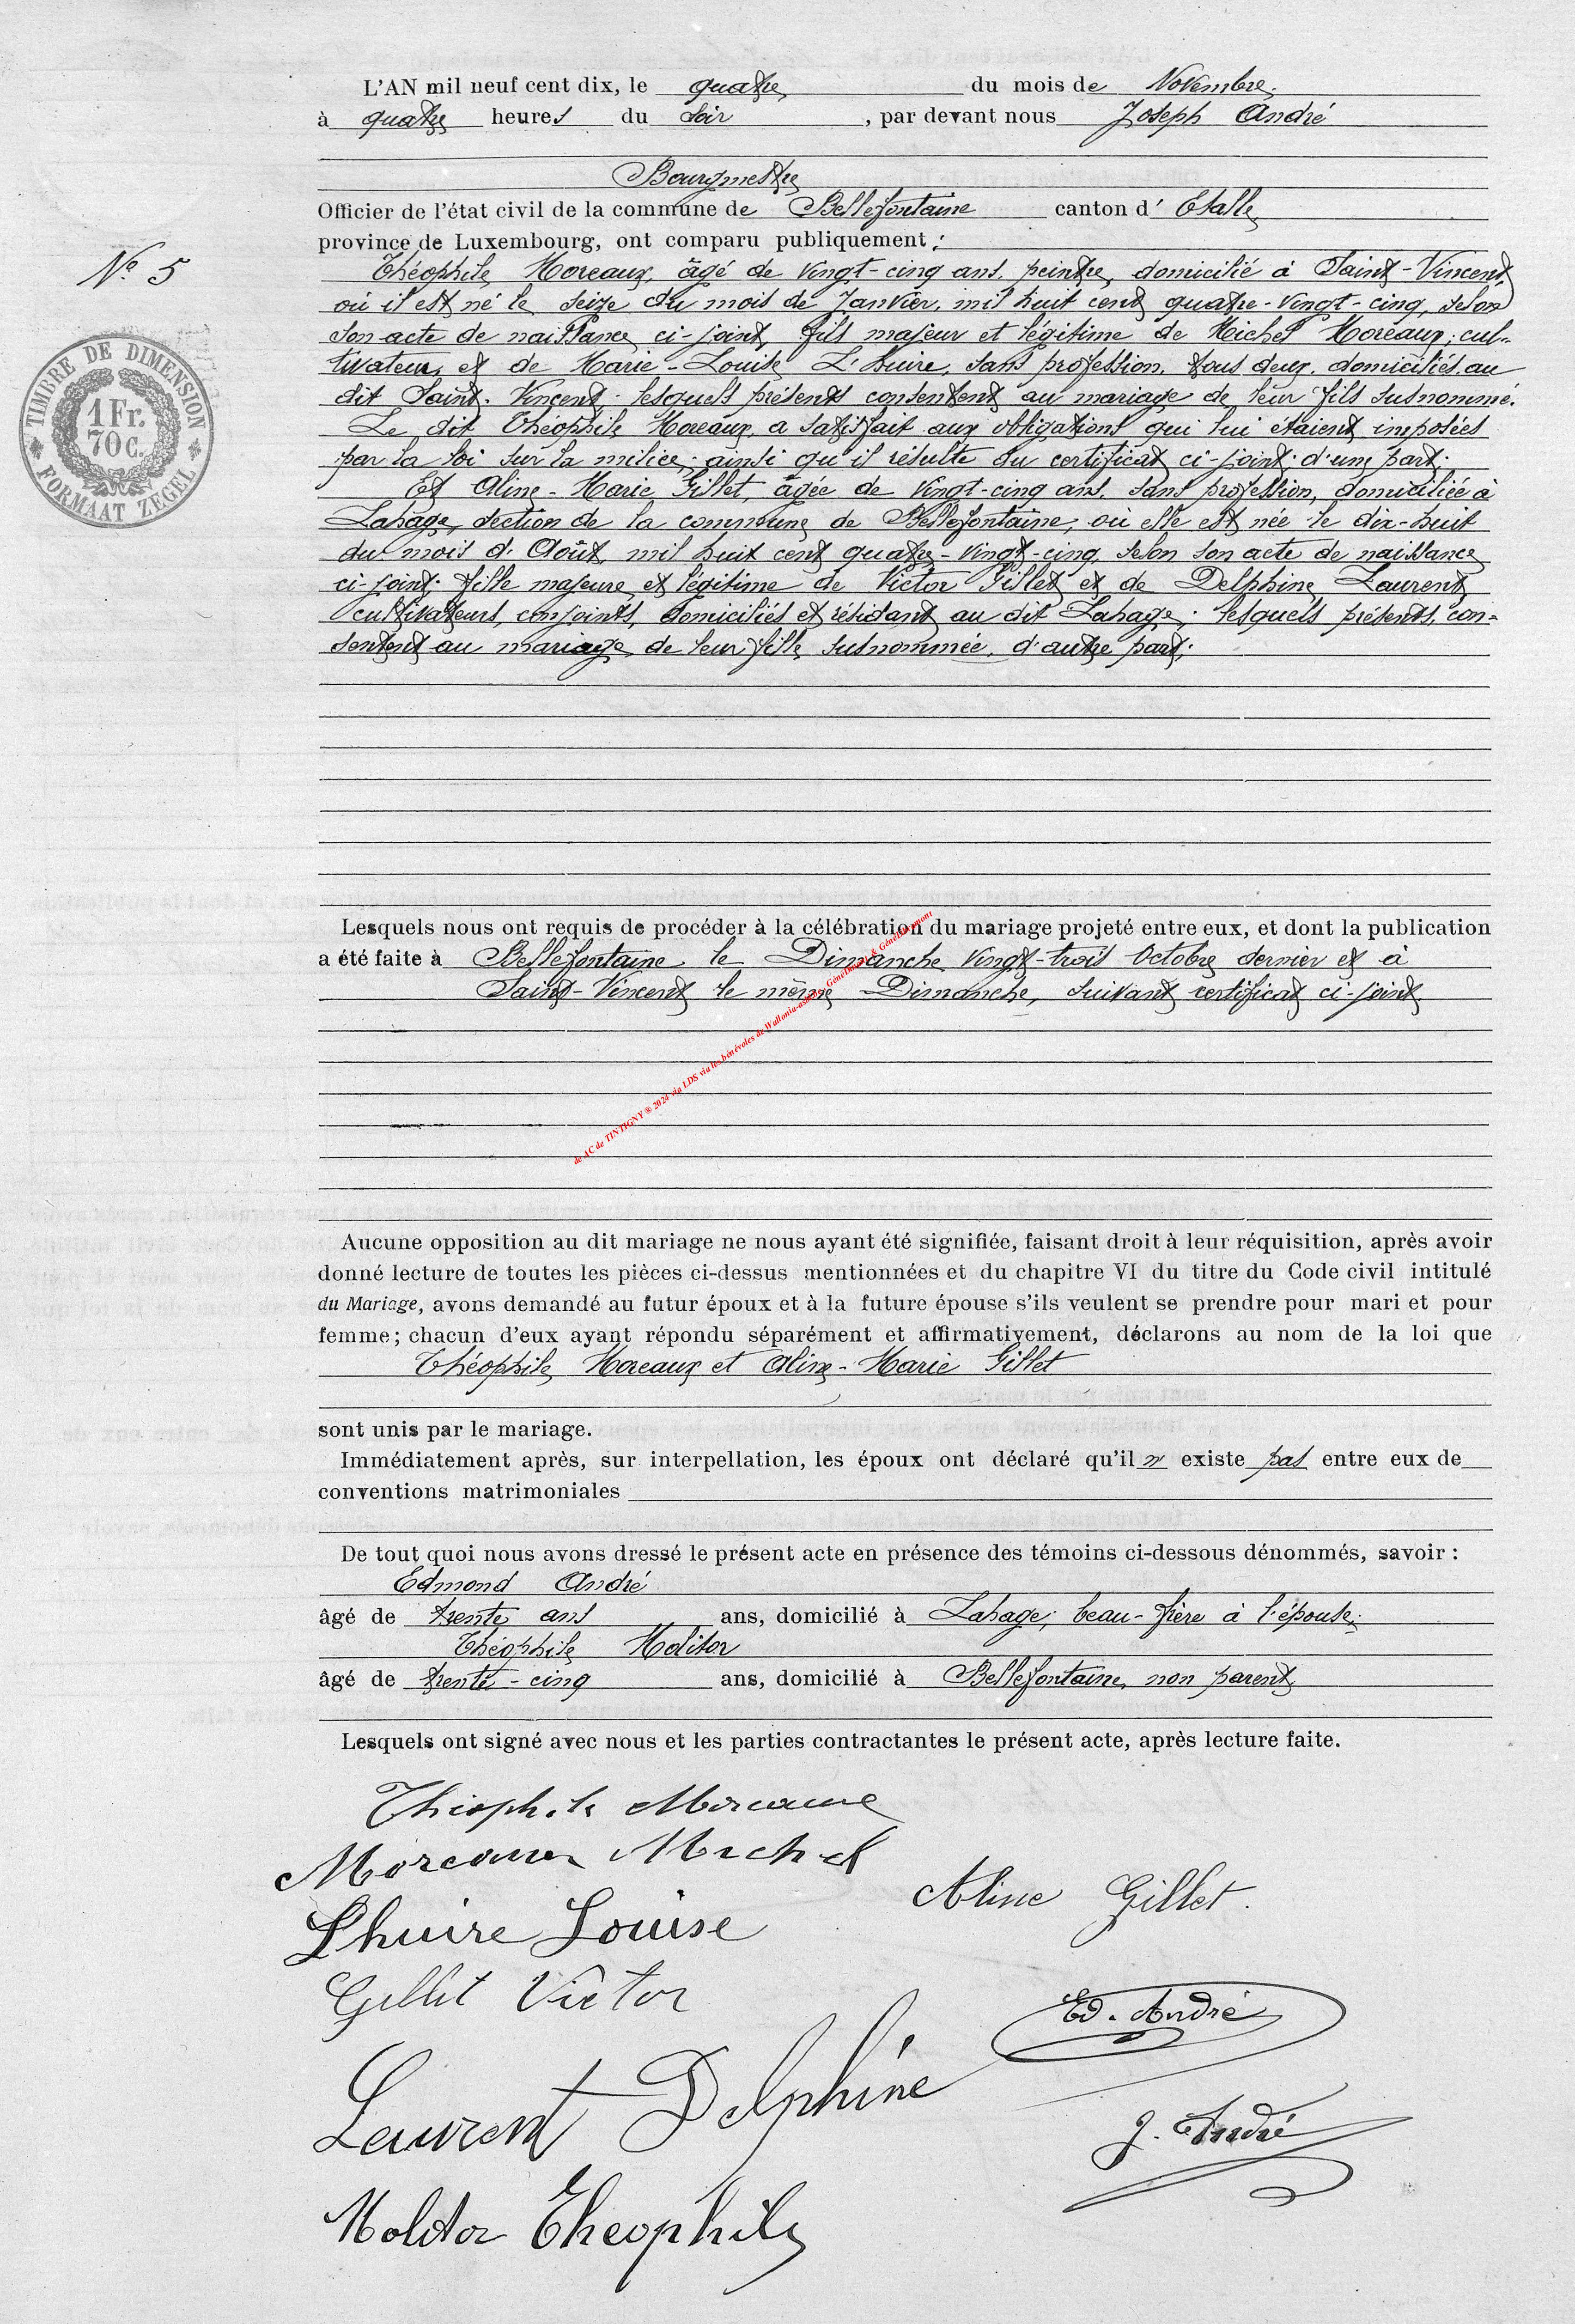 L'AN mil neuf cent dix, le quatre du mois de Novembre,
à quatre heures du soir, par devant nous Joseph André
Bourgmestre
Officier de l'état civil de la commune de Bellefontaine canton d' Etalle
province de Luxembourg, ont comparu publiquement :
N° 5
Théophile Moreaux, âgé de vingt-cinq ans, peintre, domicilié à Saint-Vincent,
où il est né le seize du mois de Janvier, mil huit cent quatre-vingt-cinq, selon
son acte de naissance ci-joint, fils majeur et légitime de Michel Moreaux, cul-
tivateur, et de Marie-Louise L'huire, sans profession, tous deux domiciliés au
dit Saint-Vincent; lesquels présents consentent au mariage de leur fils susnommé.
Le dit Théophile Moreaux a satisfait aux obligations qui lui étaient imposées
par la loi sur la milice; ainsi qu'il résulte du certificat ci-joint; d'une part;
Et Aline-Marie Gillet, âgée de vingt-cinq ans, sans profession, domiciliée à
Lahage, section de la commune de Bellefontaine, où elle est née le dix-huit
du mois d'Août, mil huit cent quatre-vingt-cinq, selon son acte de naissance
ci-joint; fille majeure et légitime de Victor Gillet et de Delphine Laurent,
cultivateurs, conjoints, domiciliés et résidant au dit Lahage; lesquels présents, con-
sentent au mariage de leur fille susnommée, d'autre part;
TIMBRE DE DIMENSION
1 Fr.
70 C.
FORMAAT ZEGEL
Lesquels nous ont requis de procéder à la célébration du mariage projeté entre eux, et dont la publication
a été faite à Bellefontaine le Dimanche vingt-trois Octobre dernier et à
Saint-Vincent le même Dimanche, suivant certificat ci-joint
de AC de TINTIGNY ® 2024 via LDS via les bénévoles de Wallonia-asbl
Aucune opposition au dit mariage ne nous ayant été signifiée, faisant droit à leur réquisition, après avoir
donné lecture de toutes les pièces ci-dessus mentionnées et du chapitre VI du titre du Code civil intitulé
du Mariage, avons demandé au futur époux et à la future épouse s'ils veulent se prendre pour mari et pour
femme; chacun d'eux ayant répondu séparément et affirmativement, déclarons au nom de la loi que
Théophile Moreaux et Aline-Marie Gillet
sont unis par le mariage.
Immédiatement après, sur interpellation, les époux ont déclaré qu'il n' existe pas entre eux de
conventions matrimoniales
De tout quoi nous avons dressé le présent acte en présence des témoins ci-dessous dénommés, savoir :
Edmond André
âgé de trente ans ans, domicilié à Lahage, beau-frère à l'épouse;
Théophile Molitor
âgé de trente-cinq ans, domicilié à Bellefontaine, non parent,
Lesquels ont signé avec nous et les parties contractantes le présent acte, après lecture faite.
Théophile Moreaux
Moreaux Michel
Aline Gillet.
Lhuire Louise
Gillet Victor
Ed. André
Laurent Delphine
J. André
Molitor Théophile